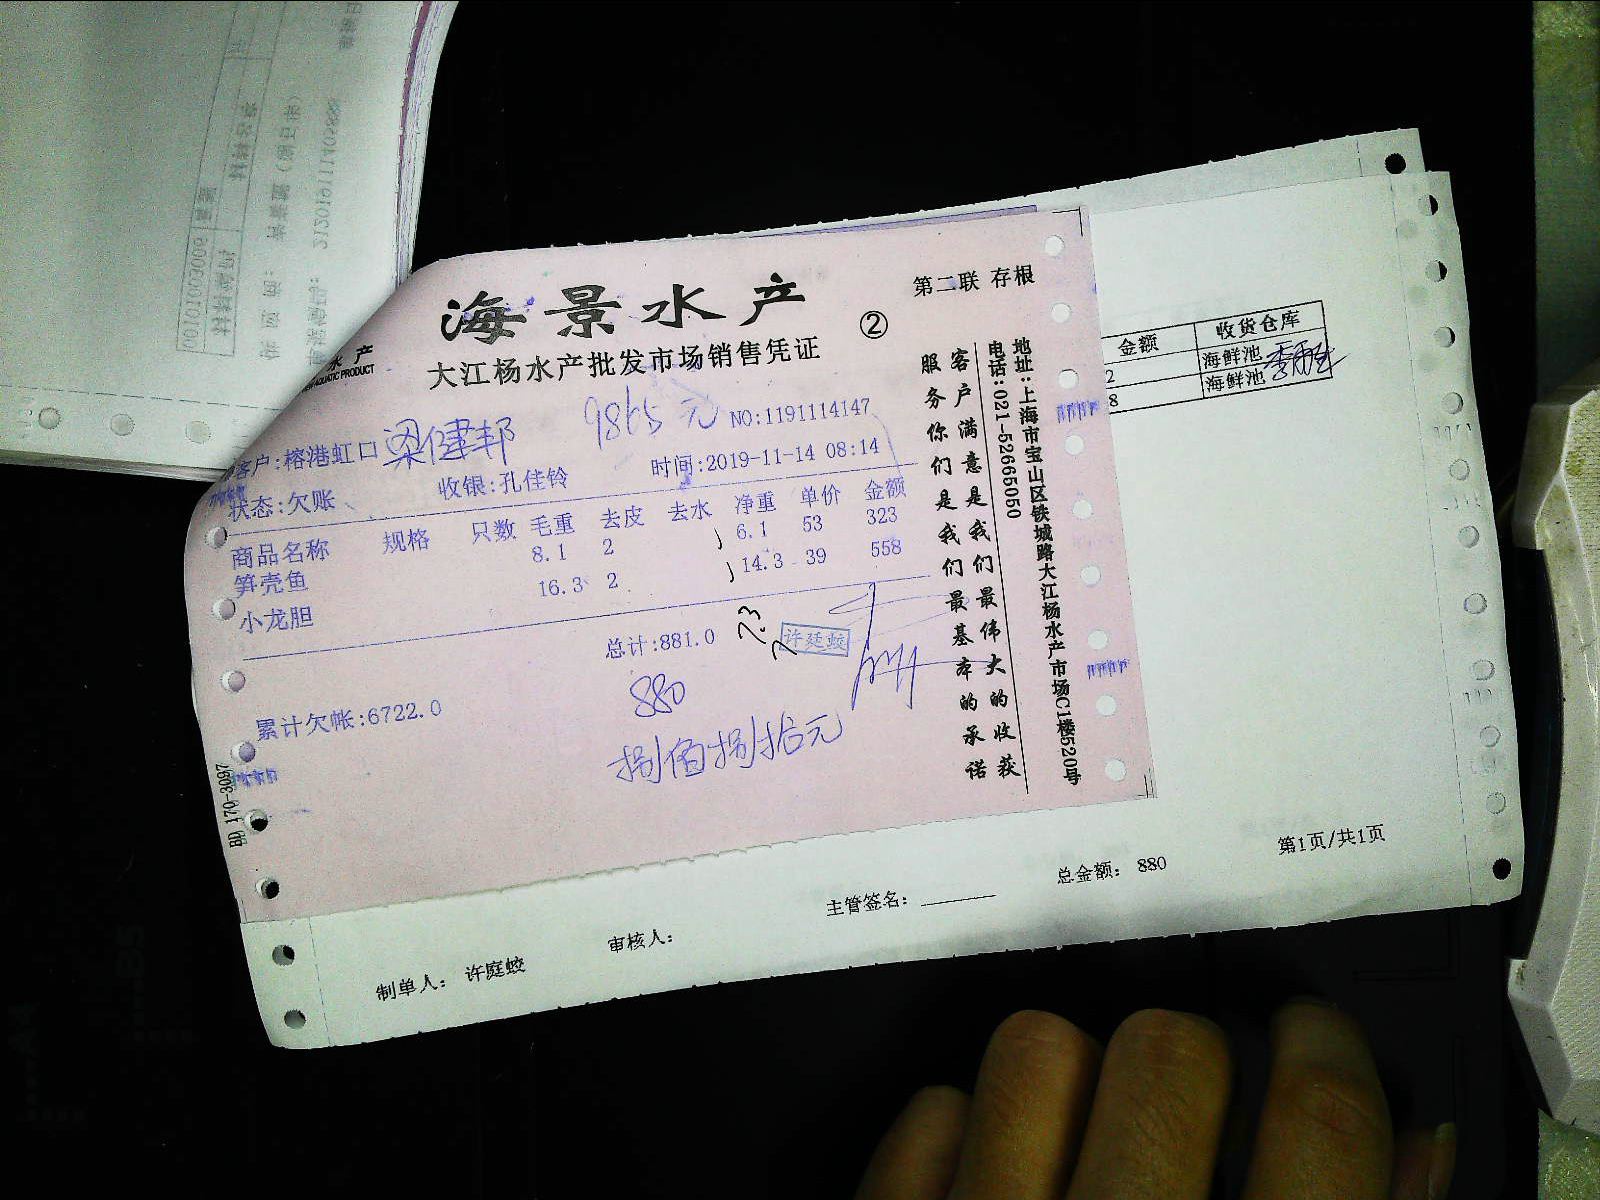 海景水产
第二联 存根
②
大江杨水产批发市场销售凭证
水产
AQUATIC PRODUCT
9865元
NO:1191114147
客户:榕港虹口 梁健邦
时间:2019-11-14 08:14
状态:欠账
收银:孔佳铃
商品名称 规格 只数 毛重 去皮 去水 净重 单价 金额
笋壳鱼 8.1 2 6.1 53 323
小龙胆 16.3 2 14.3 39 558
总计:881.0
7.3
许廷蛟
880
累计欠帐:6722.0
捌佰捌拾元
BD 170-3087
客户满意是我们最伟大的收获
服务你们是我们最基本的承诺
地址:上海市宝山区铁城路大江杨水产市场C1楼520号
电话:021-52665050
金额 收货仓库
2 海鲜池
8 海鲜池
第1页/共1页
总金额: 880
主管签名:
审核人:
制单人: 许庭蛟